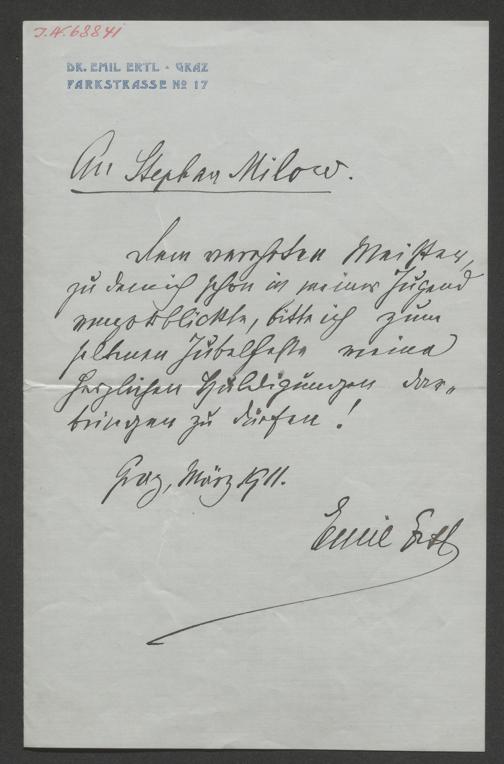 J.N. 68841
DR. EMIL ERTL · GRAZ
PARKSTRASSE No 17
An Stephan Milow.
Dem verehrten Meister,
zu dem ich schon in meiner Jugend
emporblickte, bitte ich zum
seltenen Jubelfeste meine
herzlichen Huldigungen dar-
bringen zu dürfen!
Graz, März 1911.
Emil Ertl